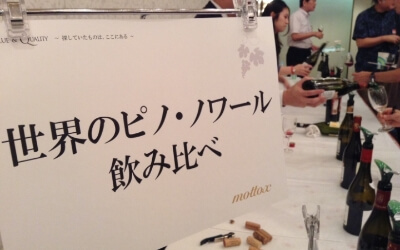 QUALITY ～ 探していたものは、ここにある ～
世界のピノ・ノワール
飲み比べ
mottox